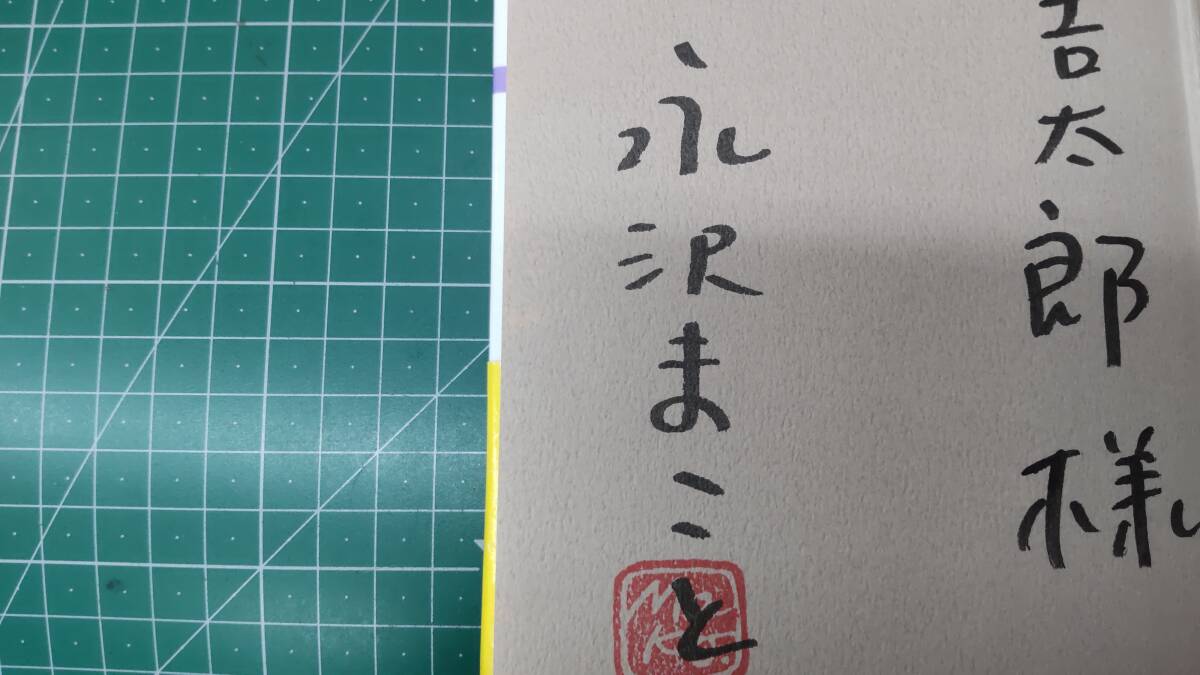 吾太郎様
永沢まこと